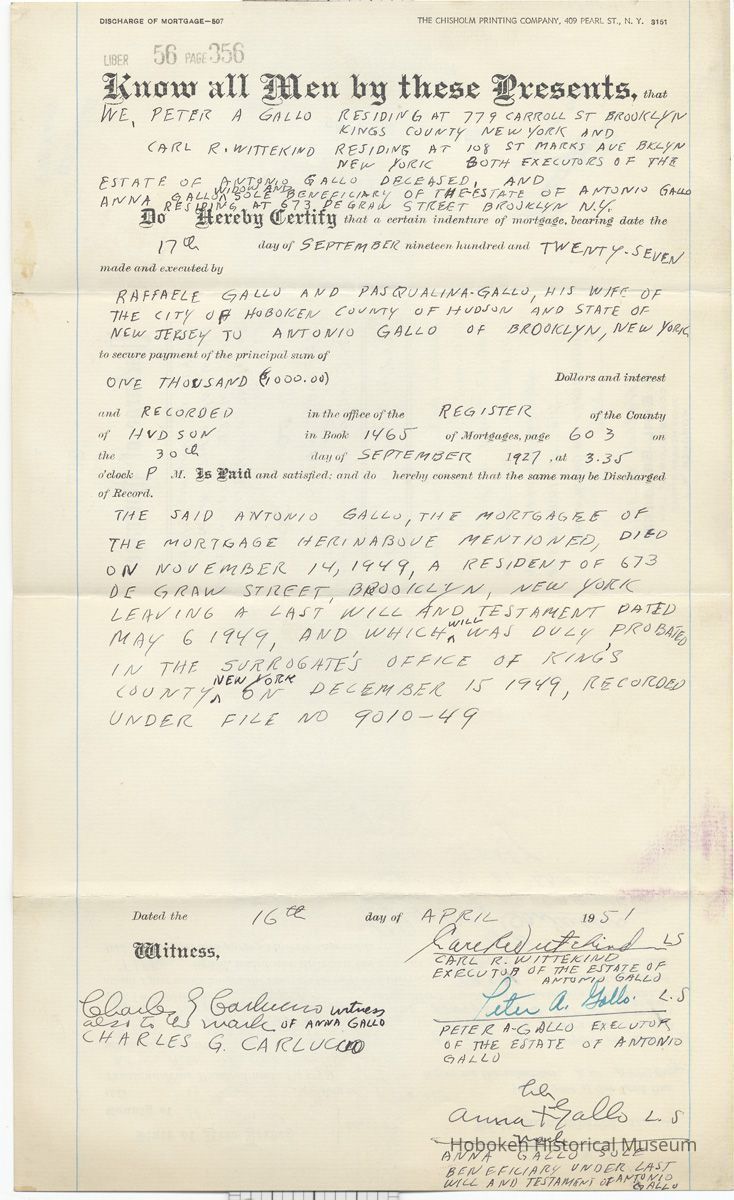 DISCHARGE OF MORTGAGE—507 THE CHISHOLM PRINTING COMPANY, 409 PEARL ST., N. Y. 3151
LIBER 56 PAGE 356
Know all Men by these Presents, that
WE, PETER A GALLO RESIDING AT 779 CARROLL ST BROOKLYN
KINGS COUNTY NEW YORK AND
CARL R. WITTEKIND RESIDING AT 108 ST MARKS AVE BKLYN
NEW YORK BOTH EXECUTORS OF THE
ESTATE OF ANTONIO GALLO DECEASED, AND
WIDOW AND
ANNA GALLO SOLE BENEFICIARY OF THE ESTATE OF ANTONIO GALLO
RESIDING AT 673 DEGRAW STREET BROOKLYN N.Y.
Do Hereby Certify that a certain indenture of mortgage, bearing date the
17th day of SEPTEMBER nineteen hundred and TWENTY-SEVEN
made and executed by
RAFFAELE GALLO AND PASQUALINA-GALLO, HIS WIFE OF
THE CITY OF HOBOKEN COUNTY OF HUDSON AND STATE OF
NEW JERSEY TO ANTONIO GALLO OF BROOKLYN, NEW YORK
to secure payment of the principal sum of
ONE THOUSAND ($1000.00) Dollars and interest
and RECORDED in the office of the REGISTER of the County
of HUDSON in Book 1465 of Mortgages, page 603 on
the 30th day of SEPTEMBER 1927, at 3.35
o'clock P M. Is Paid and satisfied: and do hereby consent that the same may be Discharged
of Record.
THE SAID ANTONIO GALLO, THE MORTGAGEE OF
THE MORTGAGE HERINABOVE MENTIONED, DIED
ON NOVEMBER 14, 1949, A RESIDENT OF 673
DE GRAW STREET, BROOKLYN, NEW YORK
LEAVING A LAST WILL AND TESTAMENT DATED
MAY 6 1949, AND WHICH WILL WAS DULY PROBATED
IN THE SURROGATE'S OFFICE OF KING'S
COUNTY NEW YORK ON DECEMBER 15 1949, RECORDED
UNDER FILE NO 9010-49
Dated the 16th day of APRIL 1951
Witness,
Carl R Wittekind LS
CARL R. WITTEKIND
EXECUTOR OF THE ESTATE OF
ANTONIO GALLO
Peter A. Gallo. L.S
PETER A-GALLO EXECUTOR
OF THE ESTATE OF ANTONIO
GALLO
Charles G Carlucci witness
also to the mark OF ANNA GALLO
CHARLES G. CARLUCCI
her
Anna + Gallo L.S
mark
Hoboken Historical Museum
ANNA GALLO SOLE
BENEFICIARY UNDER LAST
WILL AND TESTAMENT OF ANTONIO
GALLO